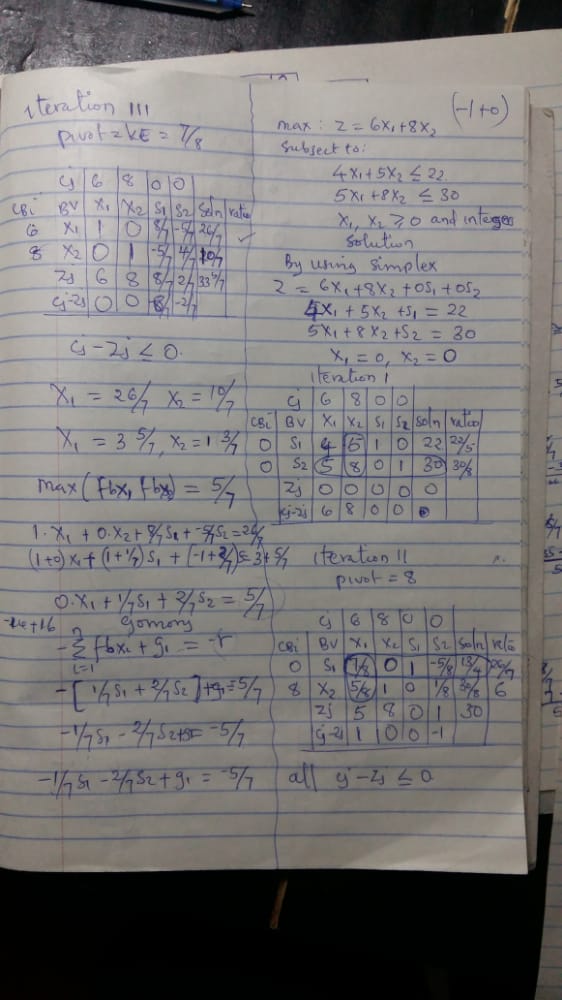 iteration III
pivot = KE = 7/8
Cj 6 8 0 0
CBi BV X1 X2 S1 S2 Soln ratio
6 X1 1 0 8/7 -5/7 26/7
8 X2 0 1 -5/7 4/7 10/7
Zj 6 8 8/7 2/7 33 5/7
Cj-Zj 0 0 -8/7 -2/7
Cj - Zj ≤ 0.
X1 = 26/7 X2 = 10/7
X1 = 3 5/7, X2 = 1 3/7
max (fbx1, fbx2) = 5/7
1. X1 + 0.X2 + 8/7 S1 + -5/7 S2 = 26/7
(1+0) X1 + (1+1/7) S1 + [-1+2/7] S2 = 3+5/7
0.X1 + 1/7 S1 + 2/7 S2 = 5/7
gomory
n
-∑ fbxi + g1 = -r
i=1
-[1/7 S1 + 2/7 S2] + g1 = -5/7
-1/7 S1 - 2/7 S2 + g1 = -5/7
-1/7 S1 - 2/7 S2 + g1 = -5/7
(-1+0)
max: Z = 6X1 + 8X2
Subject to:
4X1 + 5X2 ≤ 22
5X1 + 8X2 ≤ 30
X1, X2 ≥ 0 and integers
Solution
By using simplex
Z = 6X1 + 8X2 + 0S1 + 0S2
4X1 + 5X2 + S1 = 22
5X1 + 8X2 + S2 = 30
X1 = 0, X2 = 0
iteration I
Cj 6 8 0 0
CBi BV X1 X2 S1 S2 Soln ratio
0 S1 4 5 1 0 22 22/5
0 S2 5 8 0 1 30 30/8
Zj 0 0 0 0 0
Cj-Zj 6 8 0 0 0
iteration II
pivot = 8
Cj 6 8 0 0
CBi BV X1 X2 S1 S2 Soln ratio
0 S1 7/8 0 1 -5/8 13/4 26/7
8 X2 5/8 1 0 1/8 30/8 6
Zj 5 8 0 1 30
Cj-Zj 1 0 0 -1
all Cj - Zj ≤ 0